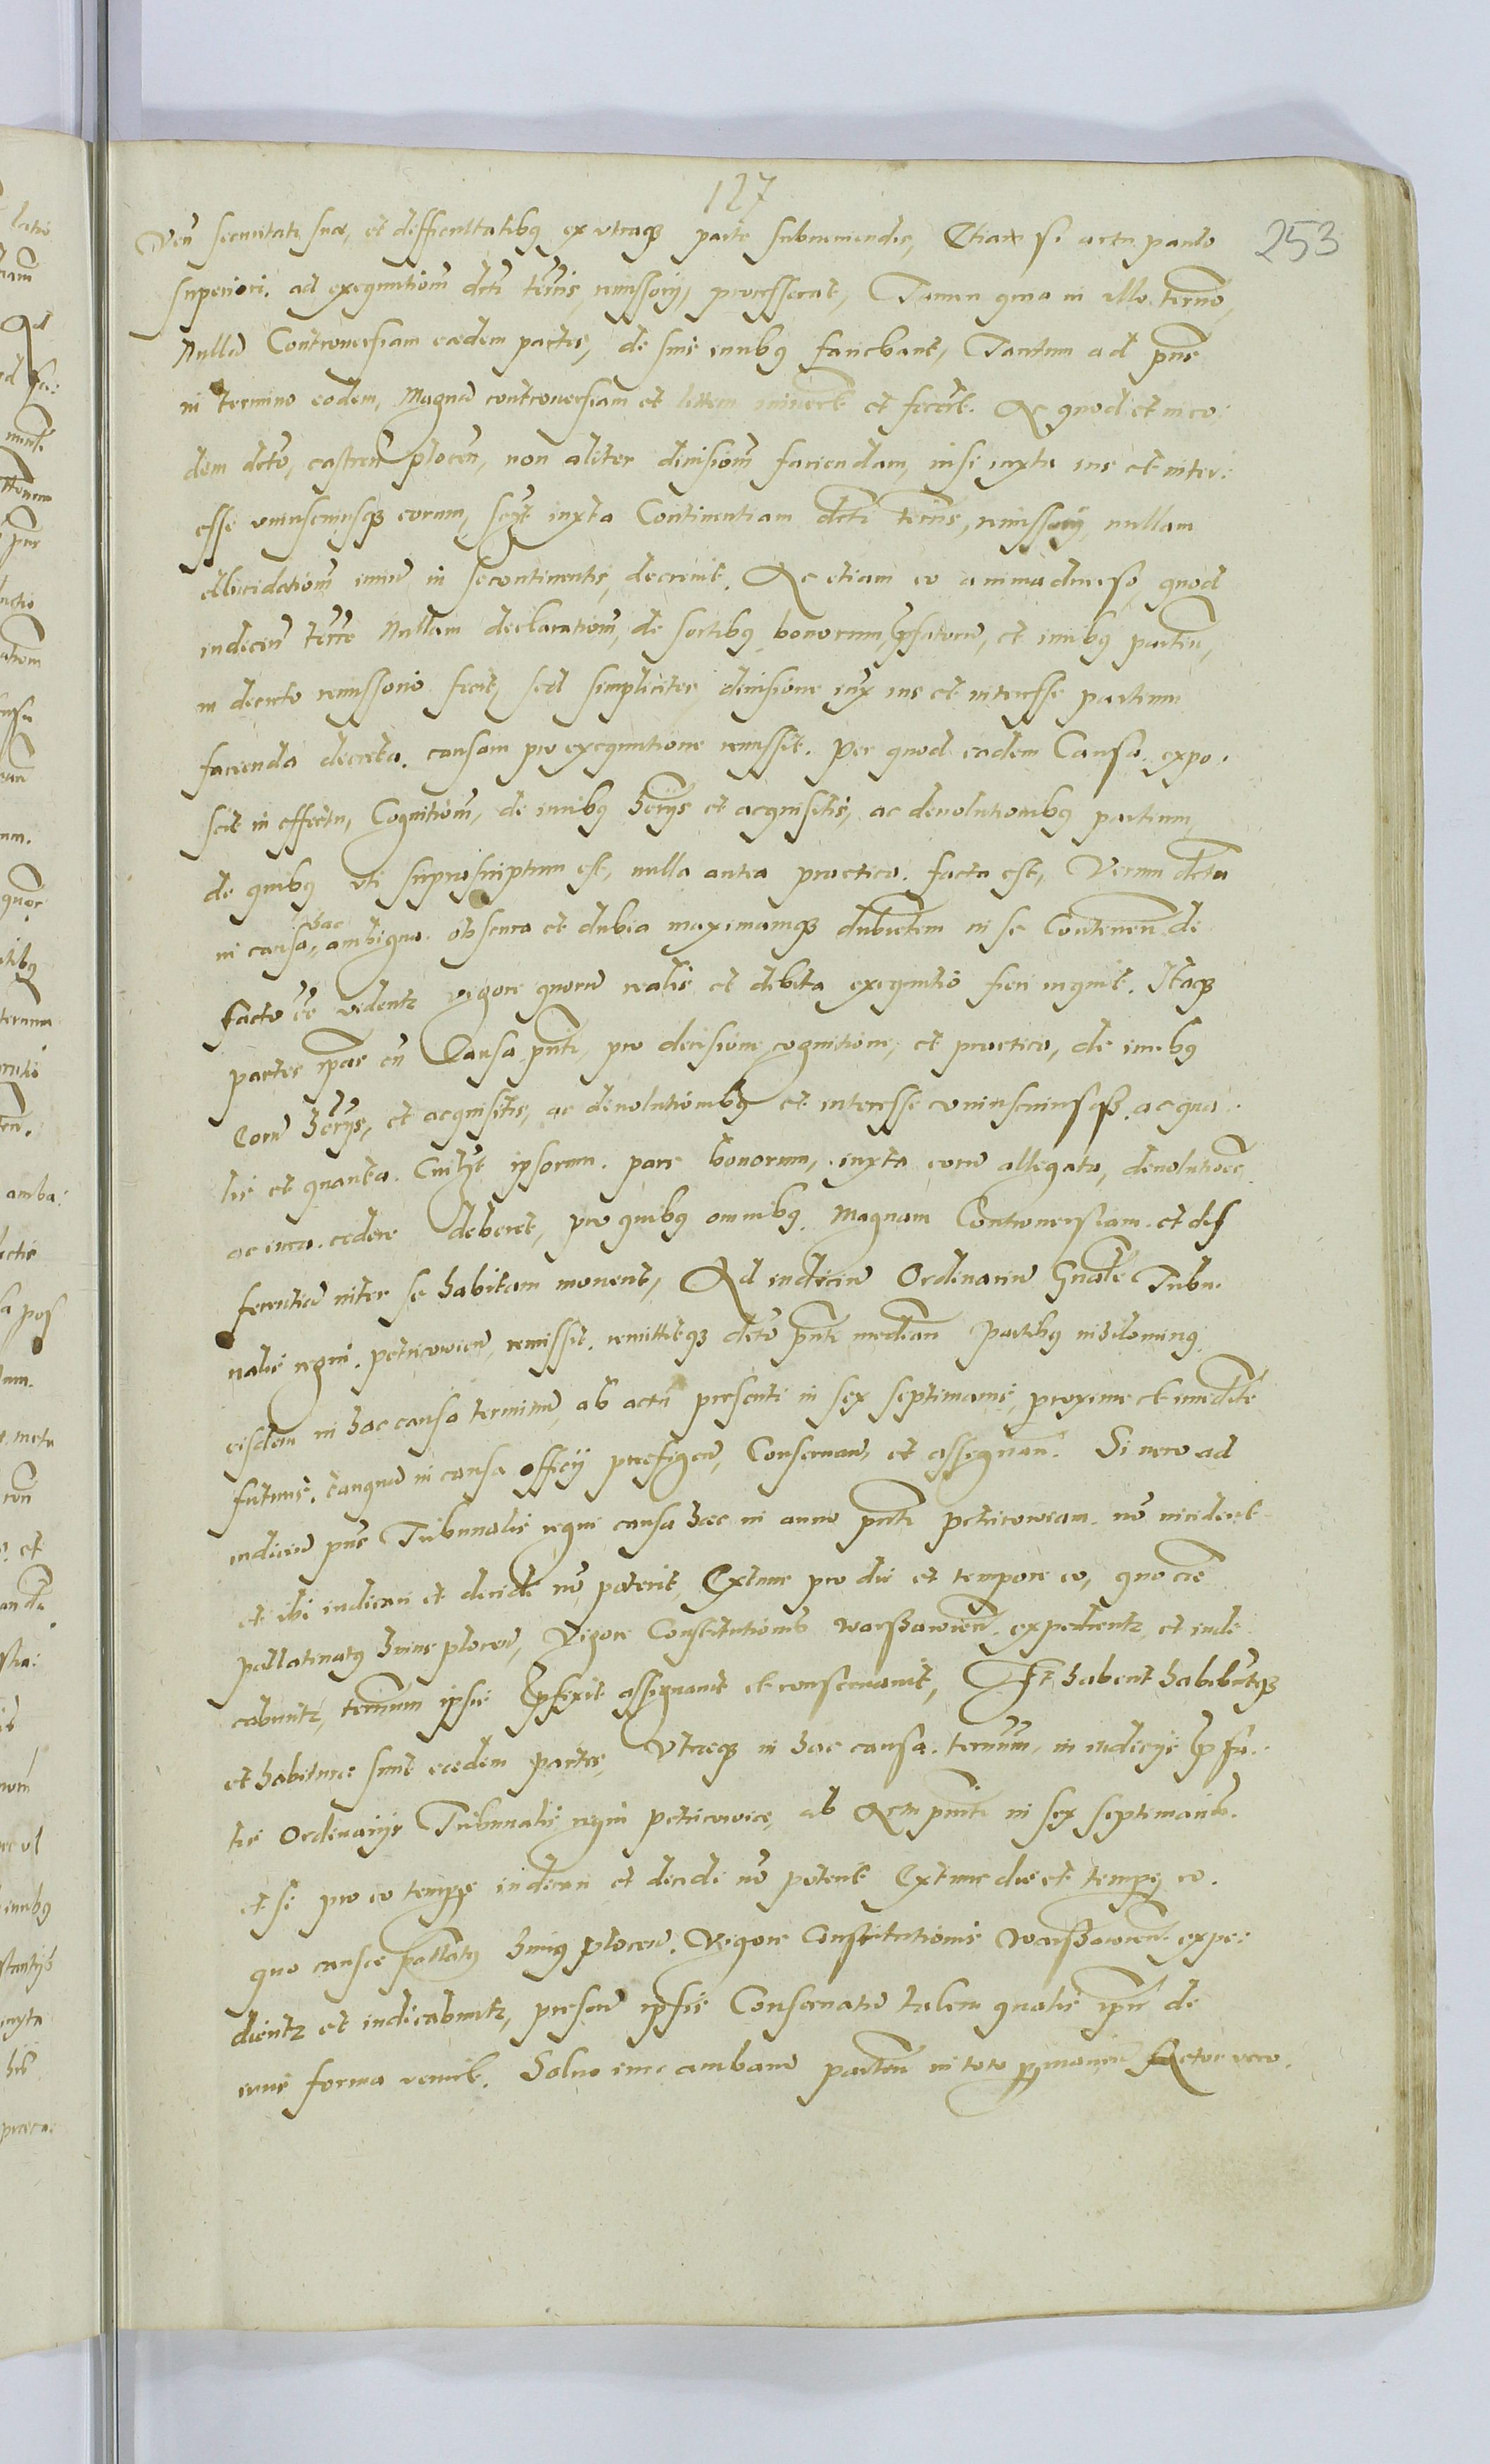 127
253
Ven securitati suae, et difficultatibus ex utraque parte subueniendis, Etiam si actu paulo
superiori. ad exequutiom dcti termis, remissorij, processerat, Tamen quia in illo termo,
Nullam Controuersiam eaedem partes, de suis iuribus faciebant, Tantum ad pns
in termino eodem, Magnam controuersiam et littem et fecerunt. Ac quod et in eo
dem dcto, castren plocen, non aliter diuisiom faciendam, nisi iuxta ius et inter:
esse uniuscuiusque eorum, scilicet iuxta Continentiam dcti termis, remissorij nullam
ellucidationem iurium in se continentis, decreuit. Ac etiam eo animaduerso, quod
iudicium terrre Nullam declaratiom, de sortibus bonorum, praefatorum, et iuribus partium,
in decreto remissorio fecit, sed simpliciter, diuisione iux ius et interesse partium
facienda decreta. causam pro exequutione remissit. Per quod eadem Causa. expo.
scit in effectu, Cognitiom, de iuribus hereditarijs et acquisitis, ac deuolutionibus partium,
de quibus uti suprascriptum est, nulla antea practica. facta est, Verum dcta
in causa hac ambigua. obscura et dubia maximamque dubietem in se Continen de
facto esse videntur vigore quorum realis et debita exequutio fieri nequit. Itaque
partes ipsas cum Causa pnti, pro decisione cognitione, et practica, de iuribus
eorum herijs, et acquisitis, ac deuolutionibus et interesse uniuscuiusque. ac qua.
lis et quanta. Cuilibet ipsorum. pars bonorum, iuxta eorum allegata, deuolutioes
ac iura. cedere deberet, pro quibus omnibus Magnam Controuersiam. et dif
ferentiam inter se habitam mouent, Ad iudicium Ordinarium Gnale Tribu.
nalis regni. petricouien, remissit. remittitque dcto pnti median Partibus nihilominus
eisdem in hac causa terminum, ab actu presenti in sex septimanis, proxime et immediate
futuris, tanquam in causa officij praefigen, Conseruan, et assignan. Si vero ad
iudicium pns Tribunalis regni causa haec in anno pnti petricouiam. non incident
et ibi iudicari et decidi non poterit, Extunc pro die et tempore eo, quo cae
pallatinatus huius plocen, Vigore Constitutionis warszawien. expedientur et iudi
cabuntur, terminum ipsis praefixit assignauit et conseruauit, Et habent habebuntque
et habituri sunt eaedem partes, Utraeque in hac causa. terminum, in iudicijs praefa.
tis Ordinarijs Tribunalis regni petricouiae, ab Actu pnti in sex septimanis.
et si pro eo tempore iudicari et decidi non poterit Extunc die et tempore eo.
quo causae pallatus huius plocen. Vigore Constitutionis warszawien expe:
dientur et iudicabuntur, presen ipsis Conseruatum talem qualis ipsum de
iuris forma venit. Saluo iure ambarum partium in toto permanen Actor vero.